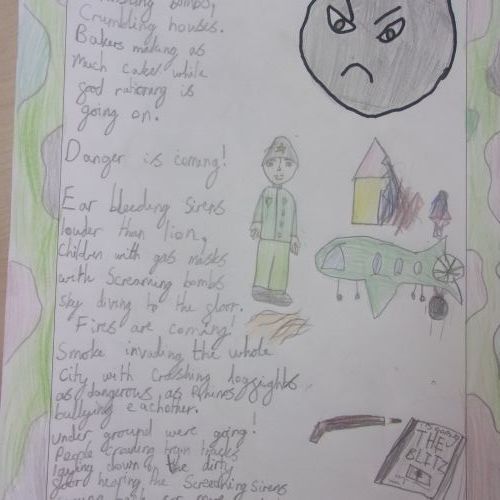 bombs,
Crumbling houses.
Bakers making as
much cakes while
good rationing is
going on.
Danger is coming!
Ear bleeding sirens
louder than lion,
Children with gas masks
with Screaming bombs
sky diving to the floor.
Fires are coming!
Smoke invading the whole
City with Crashing
as dangerous as Rhinos
bullying eachother.
under ground were going!
People crowding train tracks
laying down on the dirty
floor hearing the Screaming sirens
THE
BLITZ